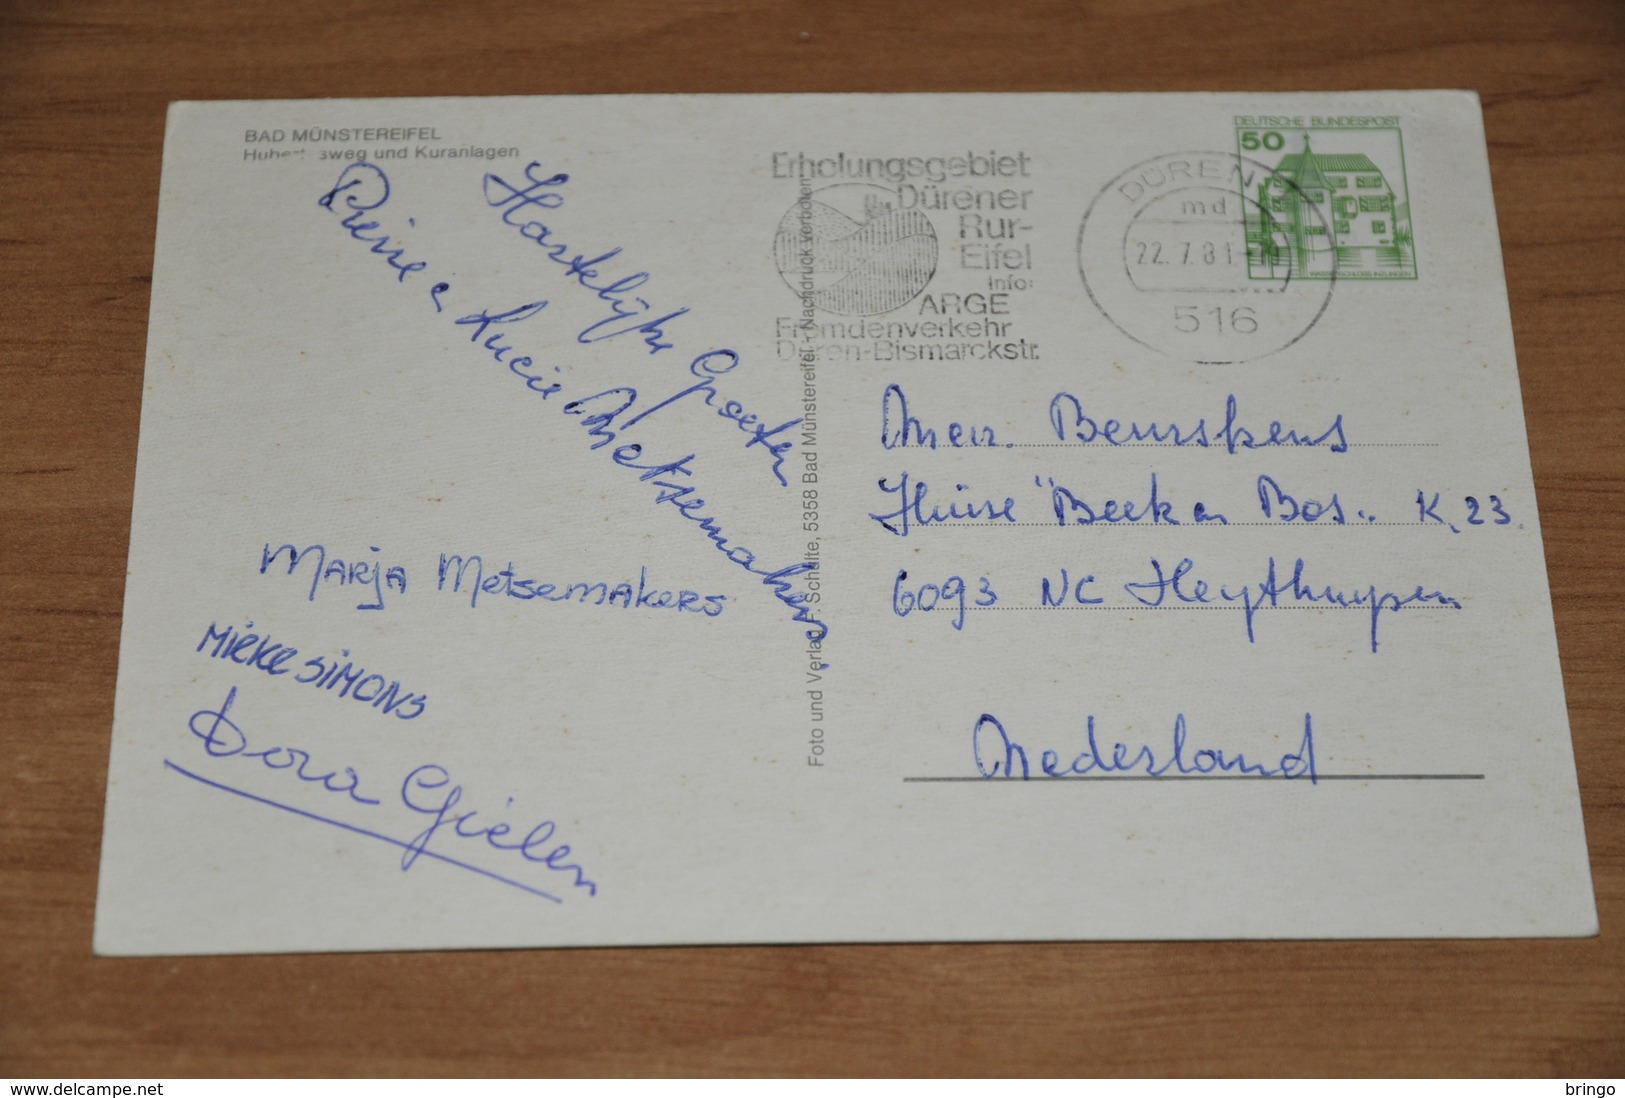 BAD MÜNSTEREIFEL
Hubertusweg und Kuranlagen
Hartelijke Groeten
Pierre e Lucie Metsemakers
Marja Metsemakers
Mieke Simons
Dora Gielen
Foto und Verlag F. Schulte, 5358 Bad Münstereifel - Nachdruck verboten
Erholungsgebiet
Dürener
Rur-
Eifel
Info:
ARGE
Fremdenverkehr
Düren-Bismarckstr.
DÜREN
md
22.7.81
516
DEUTSCHE BUNDESPOST
50
WASSERSCHLOSS INZLINGEN
Beurskens
Huize "Beek en Bos.. K.23
6093 NC Heythuysen
Nederland
www.delcampe.net
bringo